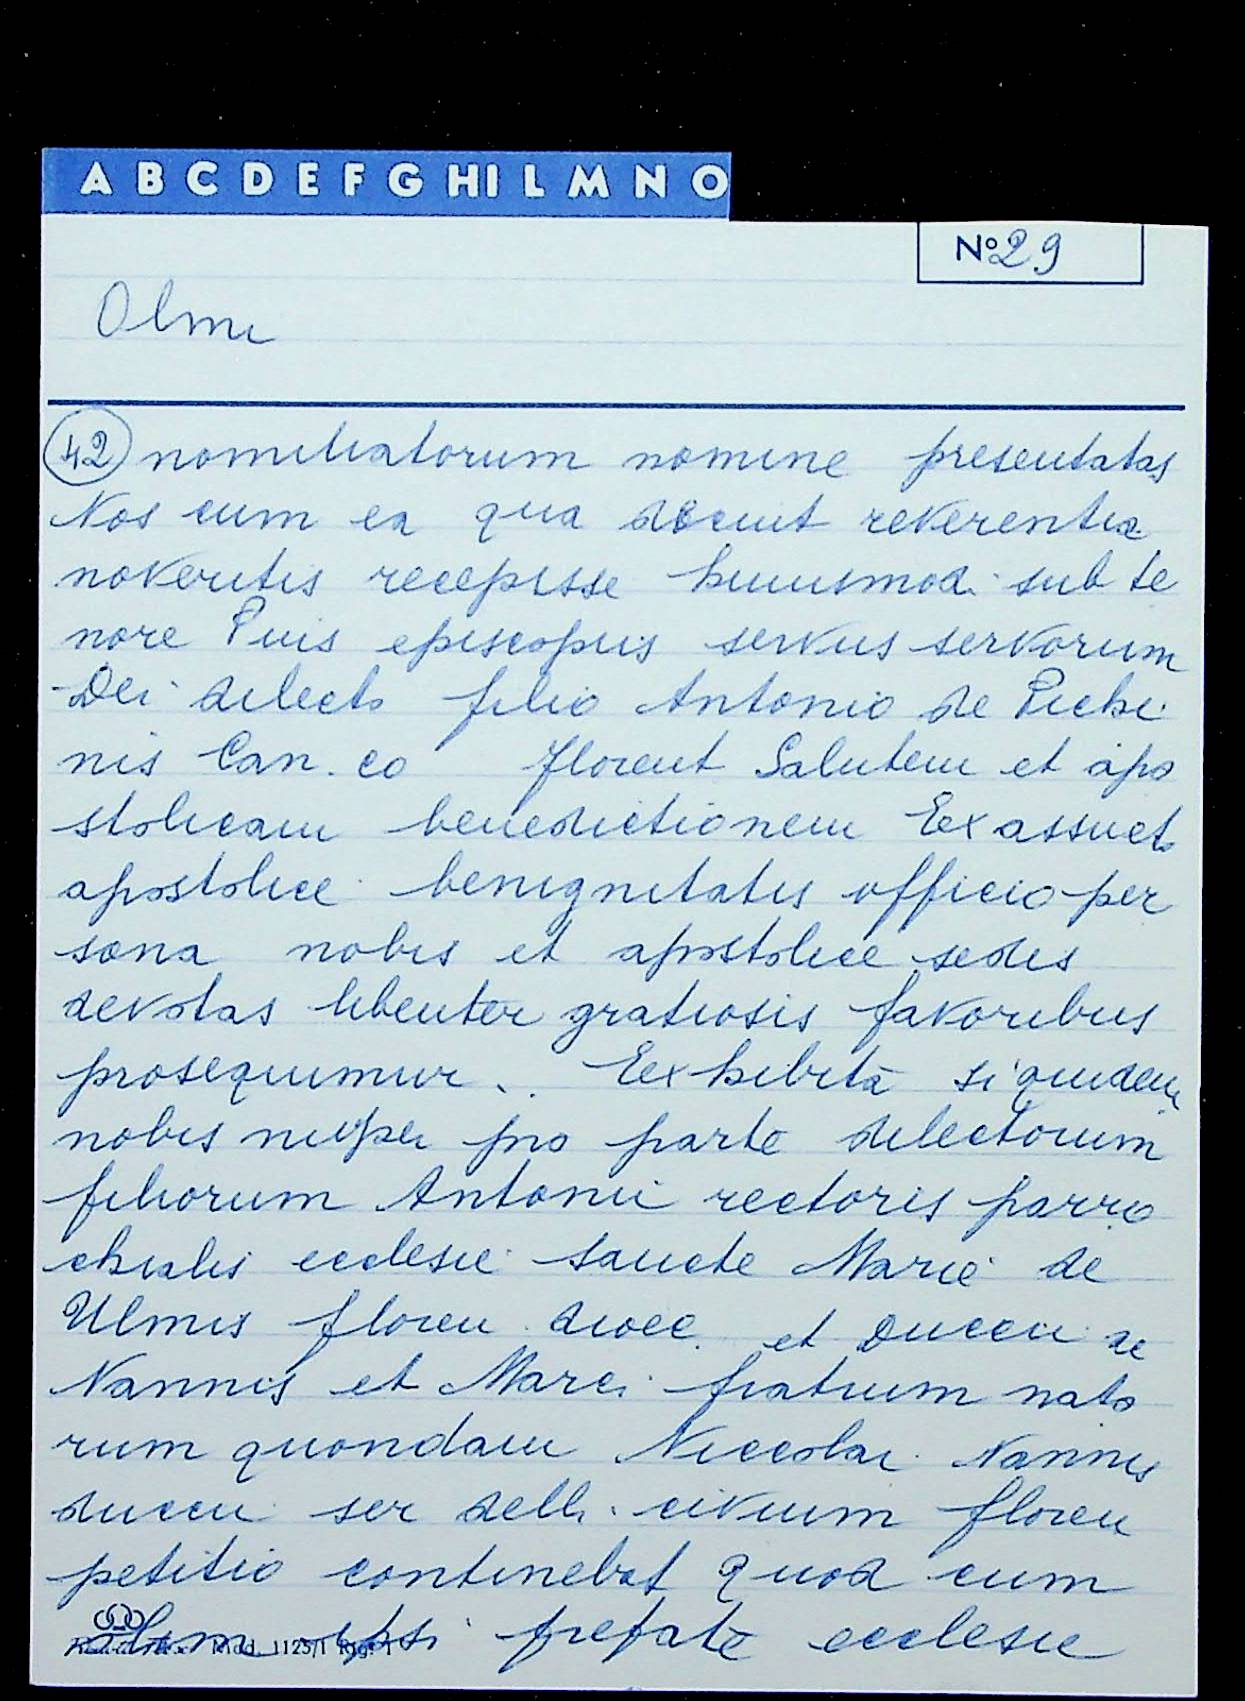 A B C D E F G HI L M N O
Nº 29
Olmi
42 nominatorum nomine presentatas
Nos cum ea qua decuit reverentia
noveritis recepisse huiusmodi sub te
nore Pius episcopus servus servorum
Dei dilecto filio Antonio de Pichi
nis Can.co florent Salutem et apo
stolicam benedictionem Ex assueto
apostolice benignitatis officio per
sona nobis et apostolice sedis
devotas libenter gratiosis favoribus
prosequimur. Exhibita siquidem
nobis nuper pro parte dilectorum
filiorum Antonii rectoris parro
chialis ecclesie sancte Marie de
Ulmis floren dioce et Duccii de
Nannis et Marci fratrum nato
rum quondam Niccolai Nannis
duccii ser delli civium floren
petitio continebat quod cum
olim ipsi prefate ecclesie
Mod. 1125/1 Rig. 1